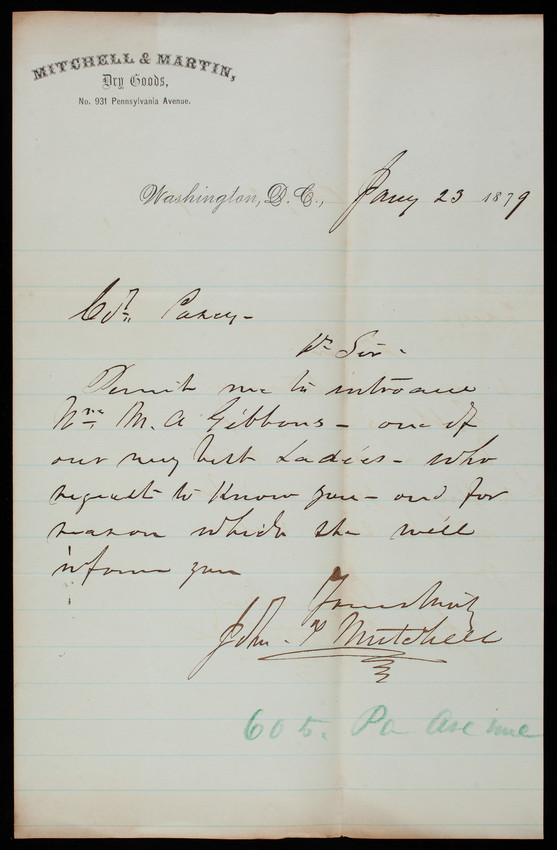 MITCHELL & MARTIN,
Dry Goods,
No. 931 Pennsylvania Avenue.
Washington, D.C., Jany 23 1879
Casey -
Dr Sir -
Permit me to introduce
M. A Gibbons - one of
our very best Ladies - who
request to know you - and for
reason which she will
inform you
Yours truly
John T Mitchell
605. Pa Avenue